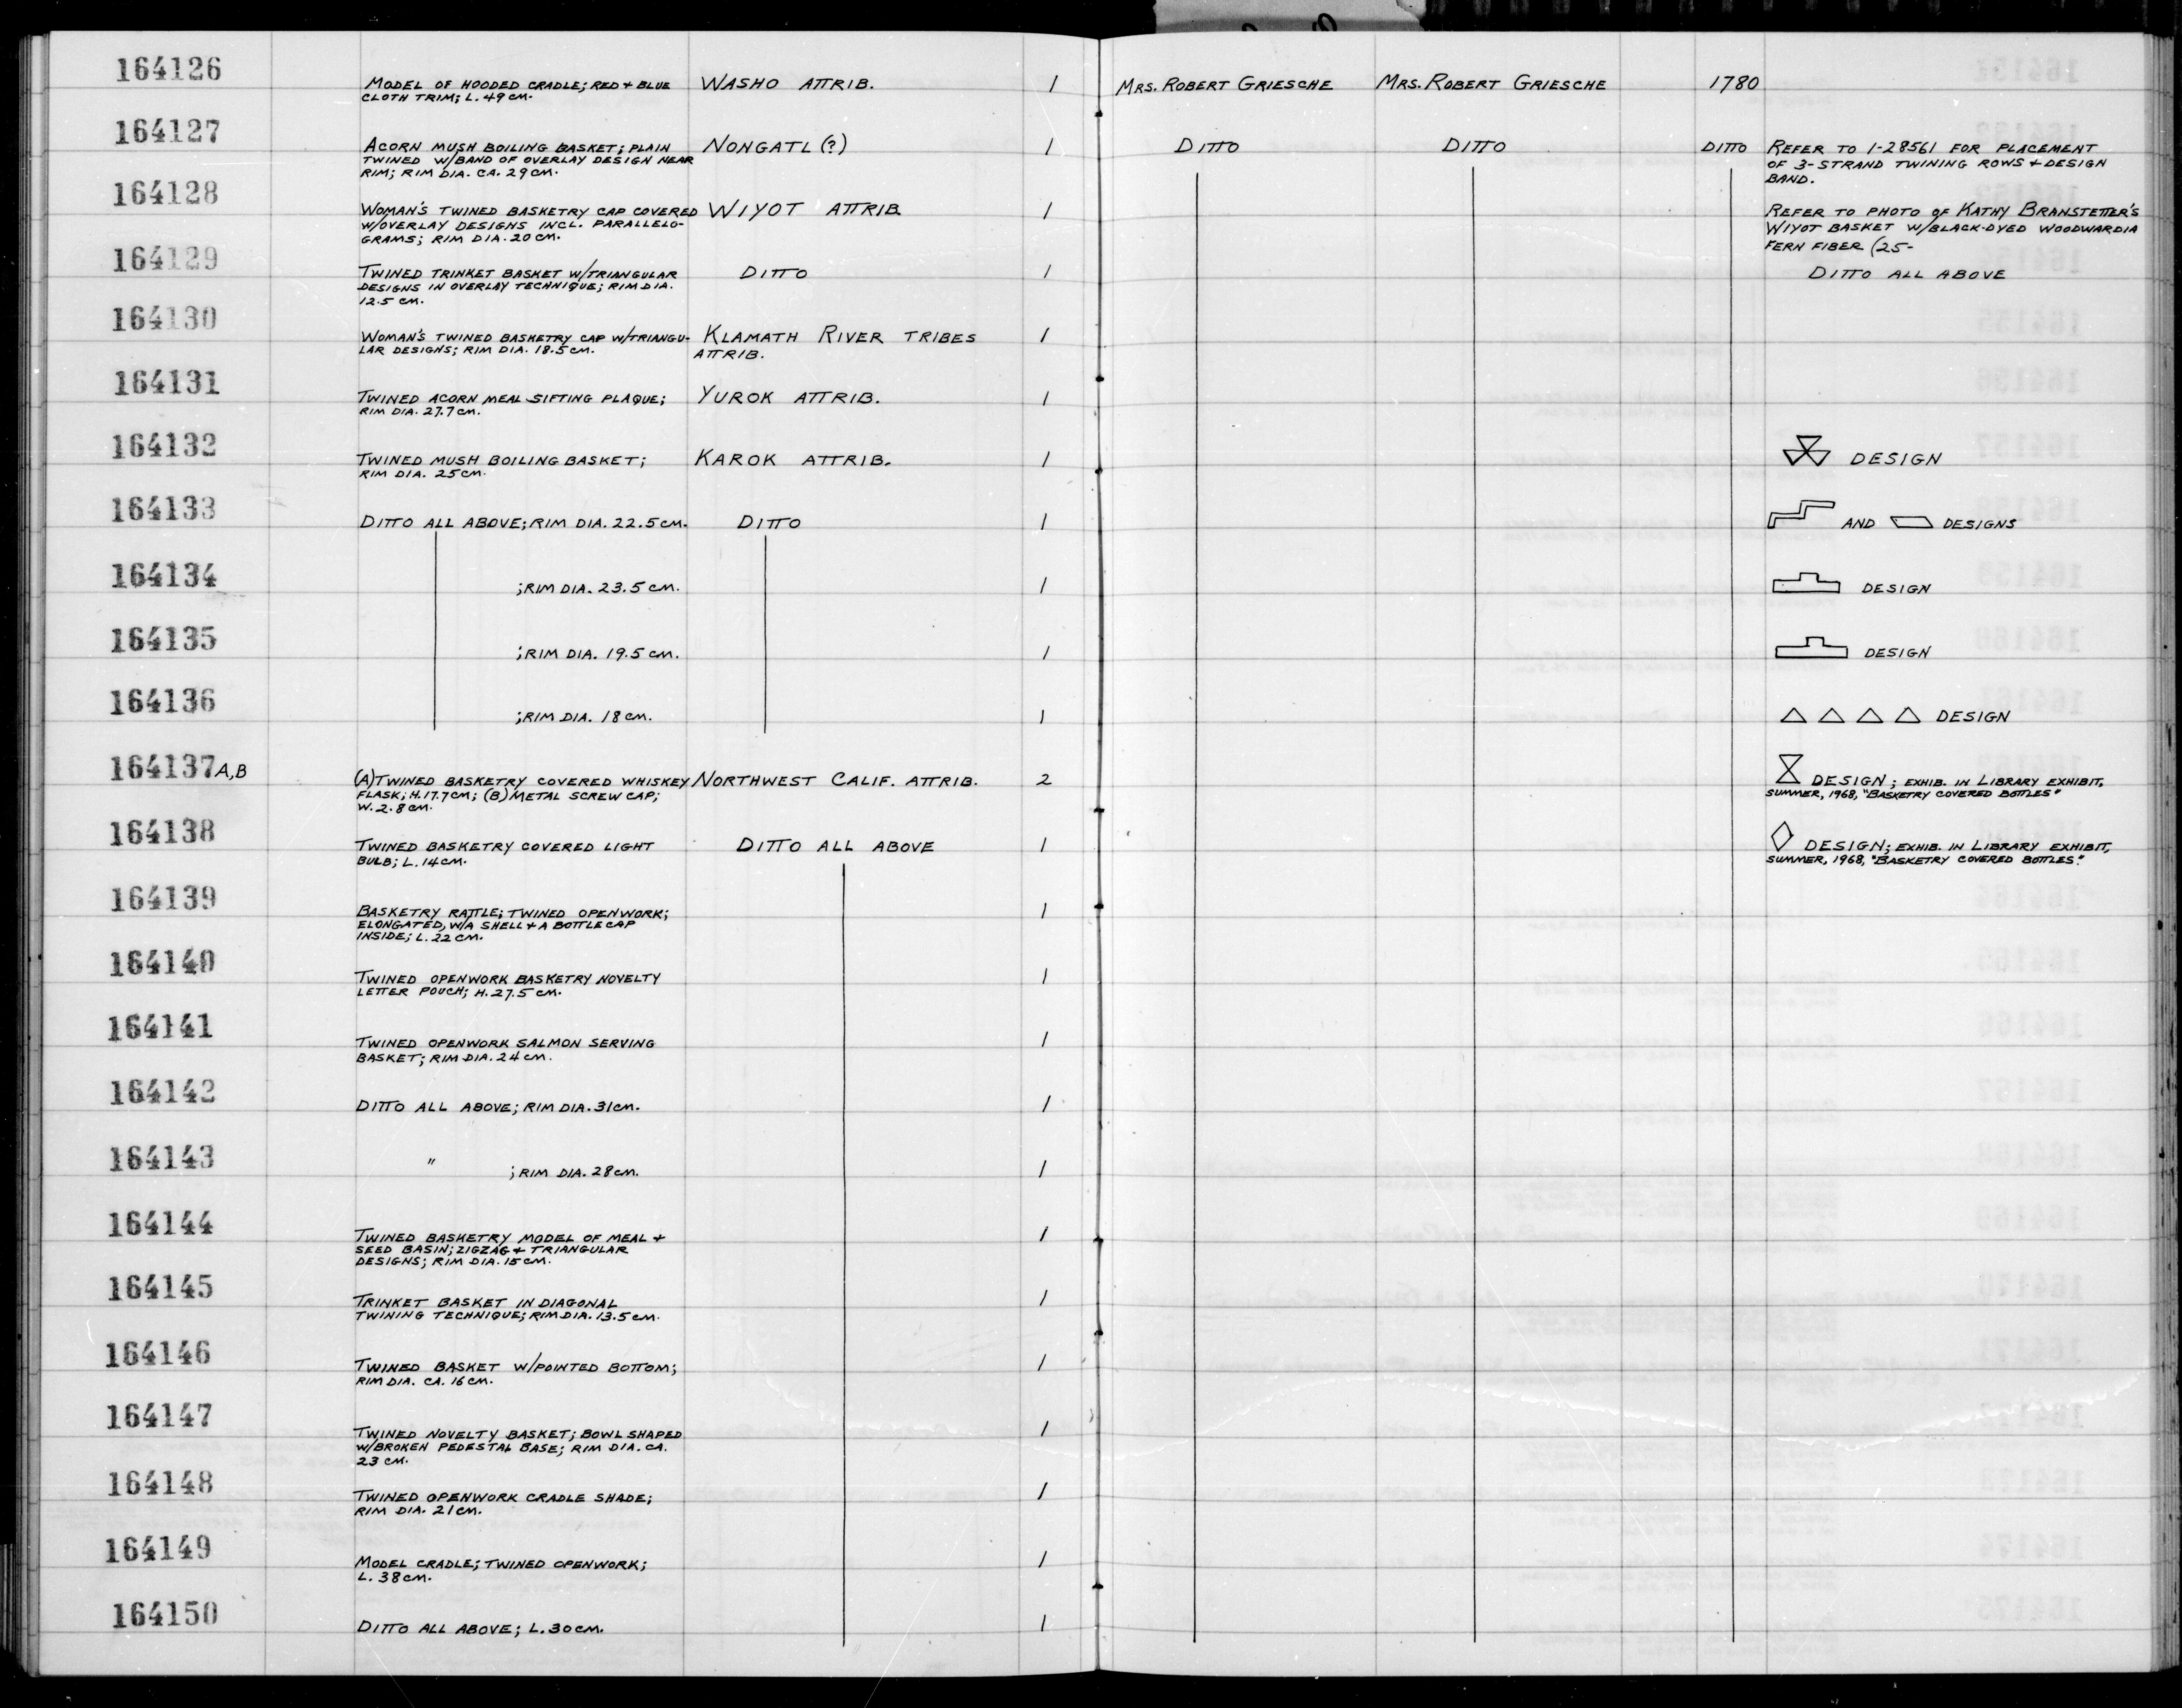 164126
MODEL OF HOODED CRADLE; RED + BLUE WASHO ATTRIB. 1 MRS. ROBERT GRIESCHE MRS. ROBERT GRIESCHE 1780
CLOTH TRIM; L. 49 CM.
164127
ACORN MUSH BOILING BASKET; PLAIN NONGATL (?) 1 DITTO DITTO DITTO REFER TO 1-28561 FOR PLACEMENT
TWINED W/BAND OF OVERLAY DESIGN NEAR OF 3-STRAND TWINING ROWS + DESIGN
RIM; RIM DIA. CA. 29 CM. BAND.
164128
WOMAN'S TWINED BASKETRY CAP COVERED WIYOT ATTRIB. 1 REFER TO PHOTO OF KATHY BRANSTETTER'S
W/OVERLAY DESIGNS INCL. PARALLELO- WIYOT BASKET W/BLACK-DYED WOODWARDIA
GRAMS; RIM DIA. 20 CM. FERN FIBER (25-
164129
TWINED TRINKET BASKET W/TRIANGULAR DITTO 1 DITTO ALL ABOVE
DESIGNS IN OVERLAY TECHNIQUE; RIM DIA.
12.5 CM.
164130
WOMAN'S TWINED BASKETRY CAP W/TRIANGU- KLAMATH RIVER TRIBES 1
LAR DESIGNS; RIM DIA. 18.5 CM. ATTRIB.
164131
TWINED ACORN MEAL SIFTING PLAQUE; YUROK ATTRIB. 1
RIM DIA. 27.7 CM.
164132
TWINED MUSH BOILING BASKET; KAROK ATTRIB. 1 DESIGN
RIM DIA. 25 CM.
164133
DITTO ALL ABOVE; RIM DIA. 22.5 CM. DITTO 1 AND DESIGNS
164134
; RIM DIA. 23.5 CM. 1 DESIGN
164135
; RIM DIA. 19.5 CM. 1 DESIGN
164136
; RIM DIA. 18 CM. 1 DESIGN
164137 A,B
(A) TWINED BASKETRY COVERED WHISKEY NORTHWEST CALIF. ATTRIB. 2 DESIGN; EXHIB. IN LIBRARY EXHIBIT,
FLASK; H. 17.7 CM; (B) METAL SCREW CAP; SUMMER, 1968, "BASKETRY COVERED BOTTLES"
W. 2.8 CM.
164138
TWINED BASKETRY COVERED LIGHT DITTO ALL ABOVE 1 DESIGN; EXHIB. IN LIBRARY EXHIBIT,
BULB; L. 14 CM. SUMMER, 1968, "BASKETRY COVERED BOTTLES."
164139
BASKETRY RATTLE; TWINED OPENWORK; 1
ELONGATED, W/A SHELL + A BOTTLE CAP
INSIDE; L. 22 CM.
164140
TWINED OPENWORK BASKETRY NOVELTY 1
LETTER POUCH; H. 27.5 CM.
164141
TWINED OPENWORK SALMON SERVING 1
BASKET; RIM DIA. 24 CM.
164142
DITTO ALL ABOVE; RIM DIA. 31 CM. 1
164143
" ; RIM DIA. 28 CM. 1
164144
TWINED BASKETRY MODEL OF MEAL + 1
SEED BASIN; ZIGZAG + TRIANGULAR
DESIGNS; RIM DIA. 15 CM.
164145
TRINKET BASKET IN DIAGONAL 1
TWINING TECHNIQUE; RIM DIA. 13.5 CM.
164146
TWINED BASKET W/POINTED BOTTOM; 1
RIM DIA. CA. 16 CM.
164147
TWINED NOVELTY BASKET; BOWL SHAPED 1
W/BROKEN PEDESTAL BASE; RIM DIA. CA.
23 CM.
164148
TWINED OPENWORK CRADLE SHADE; 1
RIM DIA. 21 CM.
164149
MODEL CRADLE; TWINED OPENWORK; 1
L. 38 CM.
164150
DITTO ALL ABOVE; L. 30 CM. 1